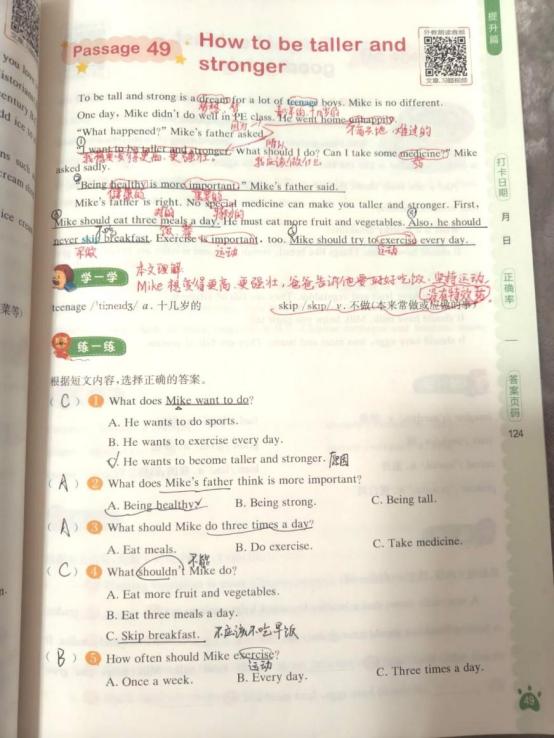 提升篇
外教朗读音频
Passage 49 How to be taller and
stronger
文章、习题视频
To be tall and strong is a dream for a lot of teenage boys. Mike is no different.
One day, Mike didn't do well in PE class. He went home unhappily.
不高兴地 难过的
"What happened?" Mike's father asked.
"I want to be taller and stronger. What should I do? Can I take some medicine?" Mike
我想变得更高、更强壮。 我应该做什么 药
asked sadly.
"Being healthy is more important," Mike's father said.
健康的 重要的
Mike's father is right. No special medicine can make you taller and stronger. First,
特别的
Mike should eat three meals a day. He must eat more fruit and vegetables. Also, he should
never skip breakfast. Exercise is important, too. Mike should try to exercise every day.
不做 运动
学一学
本文理解:
Mike 想变得更高、更强壮,爸爸告诉他要好好吃饭、坚持运动,
没有特效药
teenage /ˈtiːneɪdʒ/ a. 十几岁的 skip /skɪp/ v. 不做(本来常做或应做的事)
打卡日期
月
日
正确率
答案页码
124
练一练
根据短文内容,选择正确的答案。
( C ) 1 What does Mike want to do?
A. He wants to do sports.
B. He wants to exercise every day.
C. He wants to become taller and stronger. 原因
( A ) 2 What does Mike's father think is more important?
A. Being healthy. B. Being strong. C. Being tall.
( A ) 3 What should Mike do three times a day?
A. Eat meals. B. Do exercise. C. Take medicine.
不能
( C ) 4 What shouldn't Mike do?
A. Eat more fruit and vegetables.
B. Eat three meals a day.
C. Skip breakfast. 不应该不吃早饭
( B ) 5 How often should Mike exercise?
运动
A. Once a week. B. Every day. C. Three times a day.
49